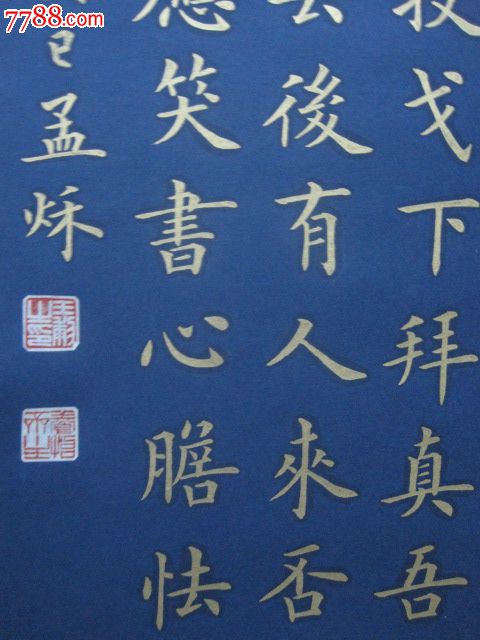 7788.com
戈下拜真吾
去後有人來否
應笑書心膽怯
巳孟秋